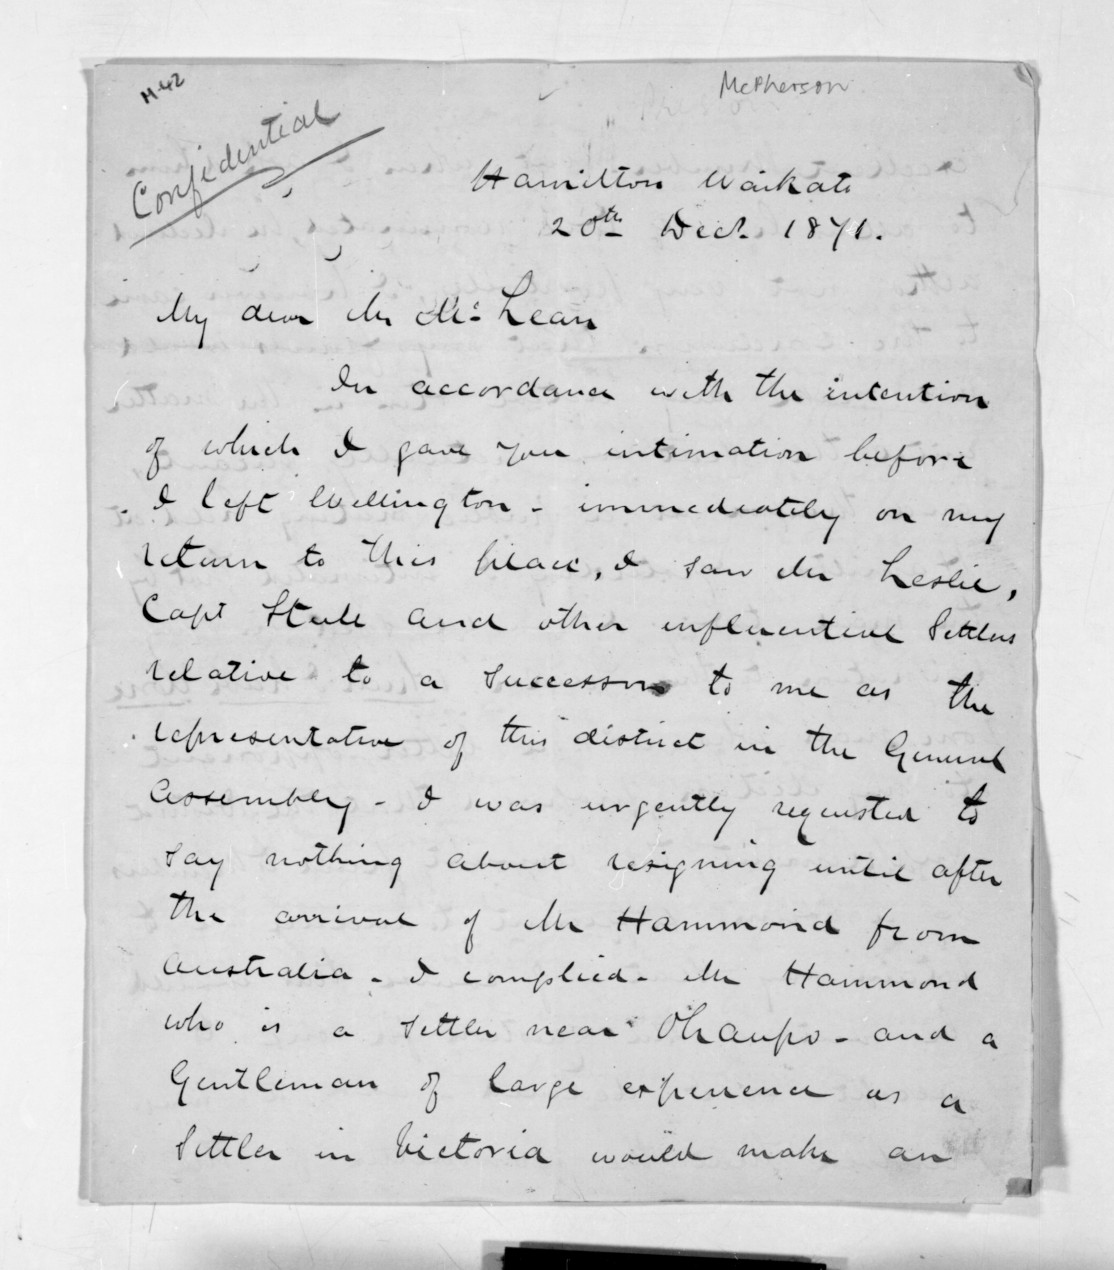 M-42
McPherson
Confidential
Hamilton Waikato
20th Decr. 1871.
My dear Mr McLean
In accordance with the intention
of which I gave you intimation before
I left Wellington - immediately on my
return to this place, I saw Mr Leslie,
Capt Steele and other influential Settlers
relative to a successor to me as the
representative of this district in the General
Assembly - I was urgently requested to
say nothing about resigning until after
the arrival of Mr Hammond from
Australia - I complied - Mr Hammond
who is a settler near Ohaupo - and a
Gentleman of large experience as a
Settler in Victoria would make an